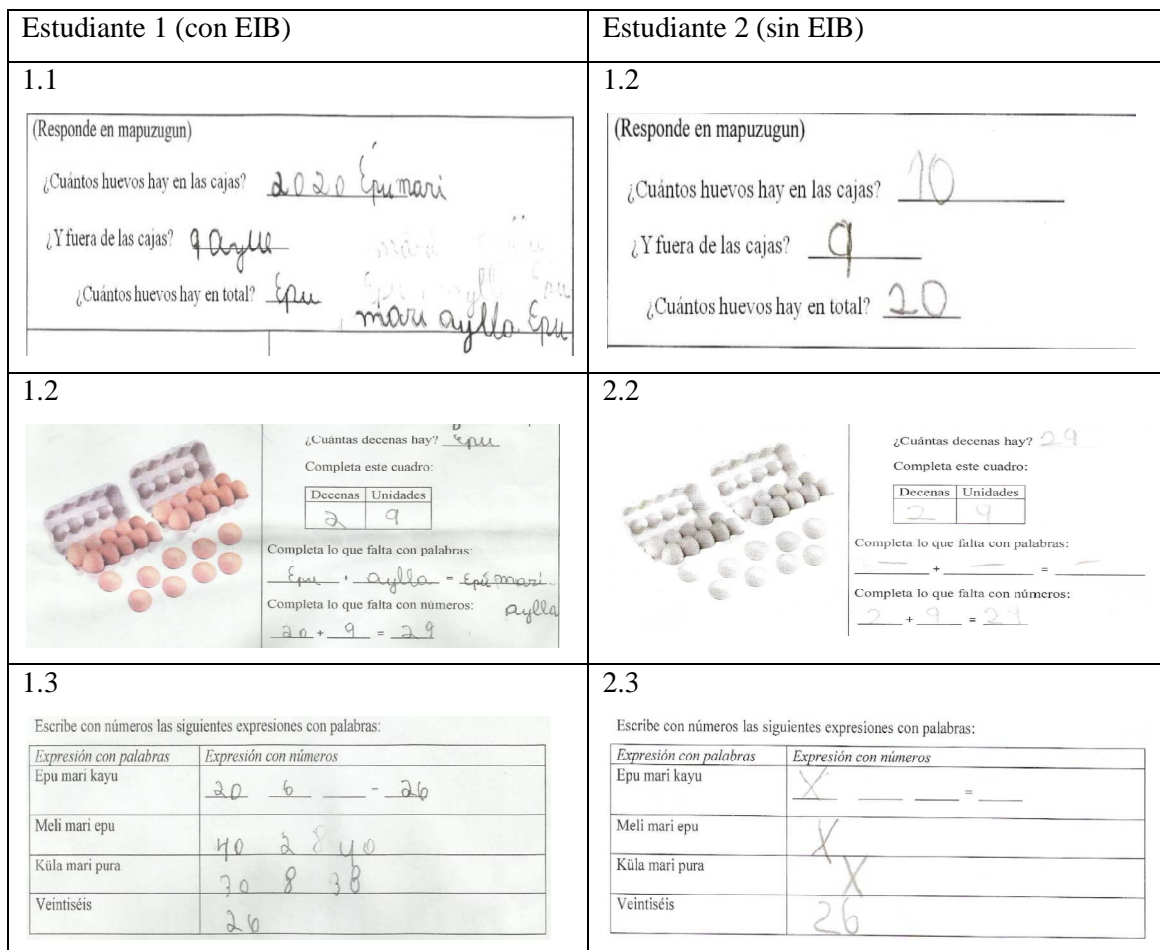 Estudiante 1 (con EIB)
Estudiante 2 (sin EIB)
1.1
(Responde en mapuzugun)
¿Cuántos huevos hay en las cajas? 2020 Epu mari
¿Y fuera de las cajas? 9 aylle
¿Cuántos huevos hay en total? Epu
mari aylla Epu
1.2
(Responde en mapuzugun)
¿Cuántos huevos hay en las cajas? 10
¿Y fuera de las cajas? 9
¿Cuántos huevos hay en total? 20
1.2
¿Cuántas decenas hay? Epu
Completa este cuadro:
Decenas Unidades
2 9
Completa lo que falta con palabras:
Epu + aylla = Epú mari
Completa lo que falta con números: aylla
20 + 9 = 29
2.2
¿Cuántas decenas hay? 29
Completa este cuadro:
Decenas Unidades
2 9
Completa lo que falta con palabras:
— + — = —
Completa lo que falta con números:
2 + 9 = 29
1.3
Escribe con números las siguientes expresiones con palabras:
Expresión con palabras Expresión con números
Epu mari kayu 20 6 - 26
Meli mari epu 40 2 8 40
Küla mari pura 30 8 38
Veintiséis 26
2.3
Escribe con números las siguientes expresiones con palabras:
Expresión con palabras Expresión con números
Epu mari kayu X =
Meli mari epu X
Küla mari pura X
Veintiséis 26